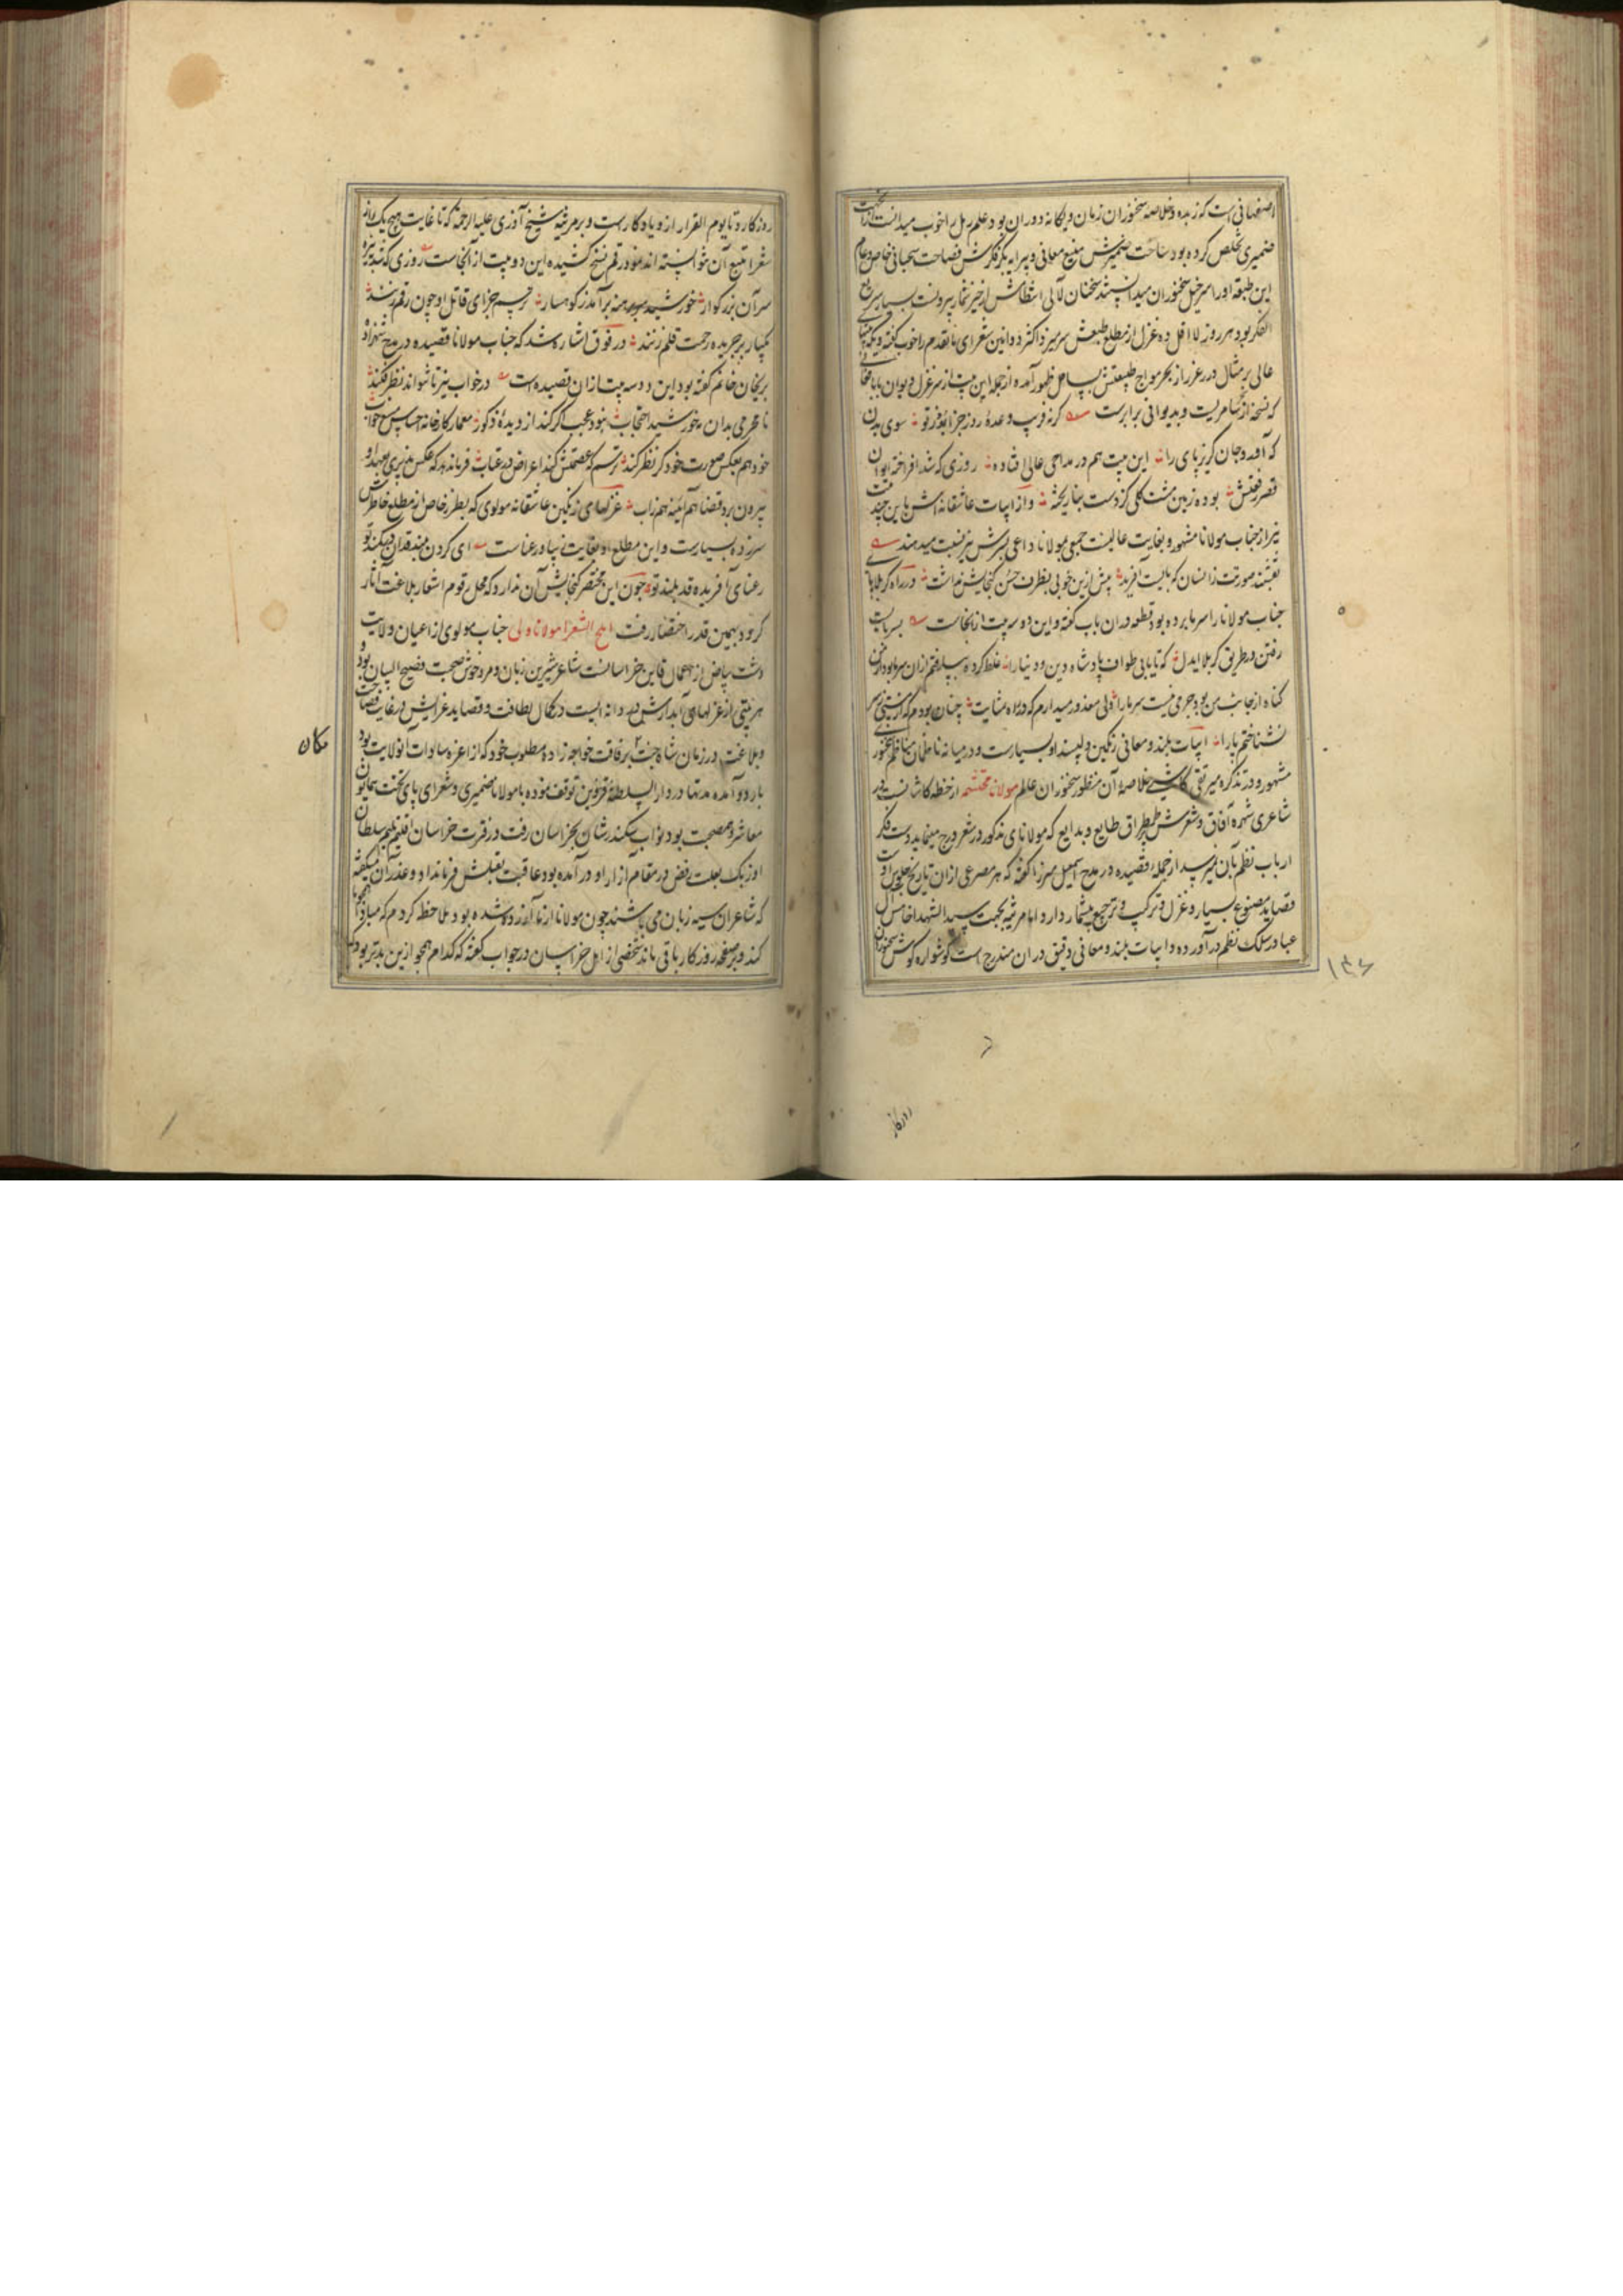 اصفهانی است که زبده و خلاصه سخنوران زمان و یکانه دوران بود و علم رمل را خوب میدانست ازان جهت
ضمیری تخلص کرده بود ساحت ضمیرش منبع معانی و پیرایه بکر فکرش فصاحت سحبانی خاص و عام
این طبقه او را سرخیل سخنوران میدانستند سخنان لآلی از خیز شمار بیرونست بسیار سریع
الفکر بود هر روز لااقل ده غزل از مطلع طبعش سر میزد اکثر دواوین شعرای ما تقدم را جواب گفته
عالی بر مثال درر غرر از بحر مواج طبیعتش بساحل ظهور آمده از جمله این بیت از سر غزل دیوان بابا فغانی
که نسخه از بیت و بدیوانی برابرست کر نه فریب وعدهٔ روز جزا بود ز تو سوی بدن
که آورد جان کریز پای را این بیت هم در مداحی عالی افتاده روزی که شد افراخته ایوان
قصر رفعتش بوده زمین مشت کلی کز دست بنا ریخته و از ابیات عاشقانه اش این چند بیت
نیز از جناب مولانا مشهور و بغایت عالیست جمعی بمولانا داعی برادرش نیز نسبت میدهند
نقشبند صورتت زانسان که بایست افرید پیش ازین خوبی بظرف حسن کنجایش نداشت در راه کربلا پای
جناب مولانا را سرما برده بود قطعه دران باب گفته و این دو سه بیت از انجاست
رفتن در طریق کربلا ایدل که تا یابی طواف پادشاه دین و دنیا را غلط کرده بپا رفتم ازان سرما بود از من
کناه از جانب من بود جرمی نیست سرما را ولی معذور میدارم که در راه چنان بودم که از مستی ز سر
نشناختم پا را ابیات بلند و معانی رنکین و دلپسند او بسیارست و در میانه ناظمان مناظم سخنوری
مشهور و در تذکره میر تقی کاشی خلاصه آن منظور سخنوران عالم مولانا محتشم از خطه کاشانست در
شاعری شهره آفاق و شعرش طمطراق صنایع و بدایع که مولانای مذکور در شعر درج مینماید دست فکر
ارباب نظم بآن نمیرسد از جمله قصیده در مدح اسمعیل میرزا گفته که هر مصرعی ازان تاریخ جلوس اوست
قصاید مصنوع بسیار و غزل و ترکیب و ترجیع بیشمار دارد اما مرثیه بجهت سید الشهدا خامس آل
عبا در سلک نظم در آورده و ابیات بلند و معانی دقیق دران مندرج است کوشواره کوش سخنوران
۱۳۶
روزکار
روزکار و تا یوم القرار از و یادکارست و بر مرثیه شیخ آذری علیه الرحمه که تا غایت هیچ یک از
شعرا تتبع آن نتوانسته اند نمود رقم نسخ کشیده این دو بیت از آنجاست روزی که شد بنیزه
سر آن بزرکوار خورشید سر برهنه برآمد ز کوهسار ترسم جزای قاتل او چون رقم زنند
یکبار بر جریده رحمت قلم زنند در فوق اشاره شد که جناب مولانا قصیده در مدح شهزاده
پریخان خانم گفته بود این دو سه بیت ازان قصیده است در خواب نیز تا نتواند نظر فکند
نا محرمی بدان مه خورشید احتجاب نبود عجب اکر کند از دیدهٔ ذکور معمار کارخانه احساس منع خواب
خود هم بعکس صورت خود کر نظر کند ترسم که عصمتش کند اعراض در عتاب فرمان دهد که عکس پذیری بعهد او
بیرون برد قضا هم از آئینه هم ز آب غزلهای رنکین عاشقانه مولوی که بطرز خاص از مطلع خاطرش
سرزده بسیارست و این مطلع او بغایت زیبا و رعناست ای کردن بلند قدان در کمند تو
رعنائی آفریده قد بلند تو چون این مختصر کنجایش آن ندارد که محل رقوم اشعار بلاغت آثار
کردد بهمین قدر اختصار رفت املح الشعرا مولانا ولی جناب مولوی از اعیان ولایت
دشت بیاض از اعمال قاین خراسانست شاعر شیرین زبان و مرد خوش صحبت و فصیح البیان بود
هر بیتی از غزلهای آبدارش در دانه ایست در کمال لطافت و قصاید غرایش در غایت فصاحت
و بلاغت در زمان شاه جنت برفاقت خواجه زاده مطلوب خود که از اعزه سادات آنولایت بود
مکان
باردو آمده مدتها در دار السلطنهٔ قزوین توقف نموده با مولانا ضمیری و شعرای پای تخت همایون
معاشر و هم صحبت بود نواب سکندر شان بخراسان رفت در فترت خراسان سلطان
اوزبک بعلت رفض در مقام آزار او در آمده بود عاقبت بقتلش فرمان داد و عذر آن میگفته
که شاعران سیه زبان می باشند چون مولانا از ما آزرده شده بود ملاحظه کردم که مبادا هجو ما
کند و بر صفحه روزکار باقی ماند شخصی از اهل خراسان در جواب گفته که کدام هجو ازین بدتر بود که